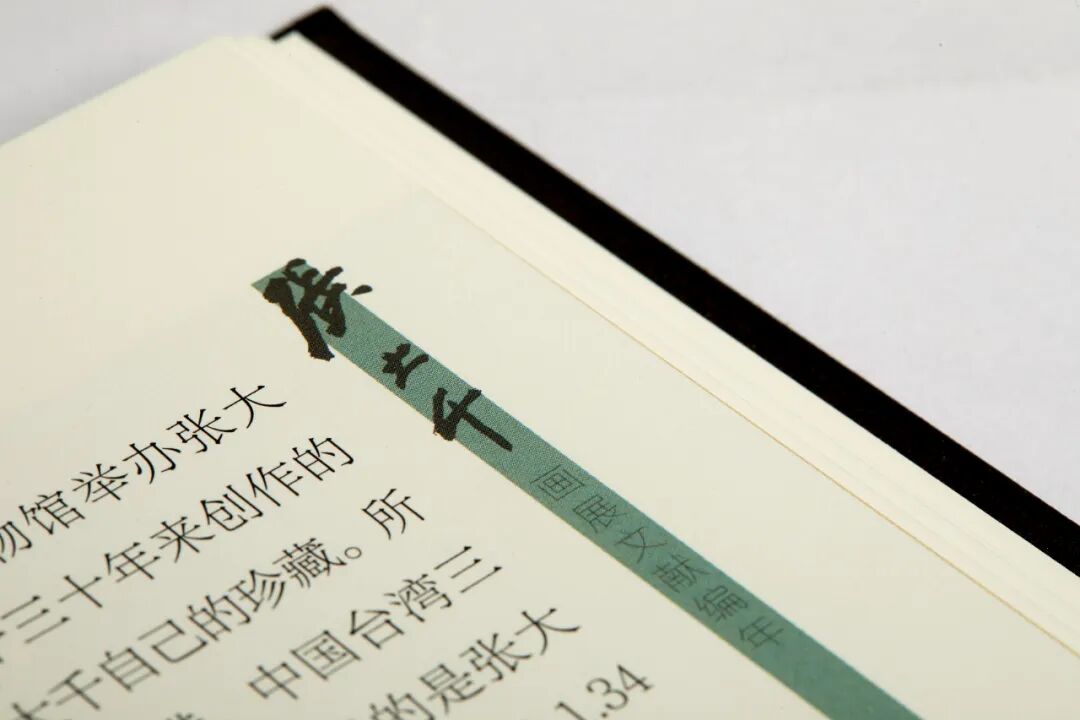 张大千
画展文献编年
物馆举办张大
三十年来创作的
大千自己的珍藏。所
中国台湾三
的是张大
1.34